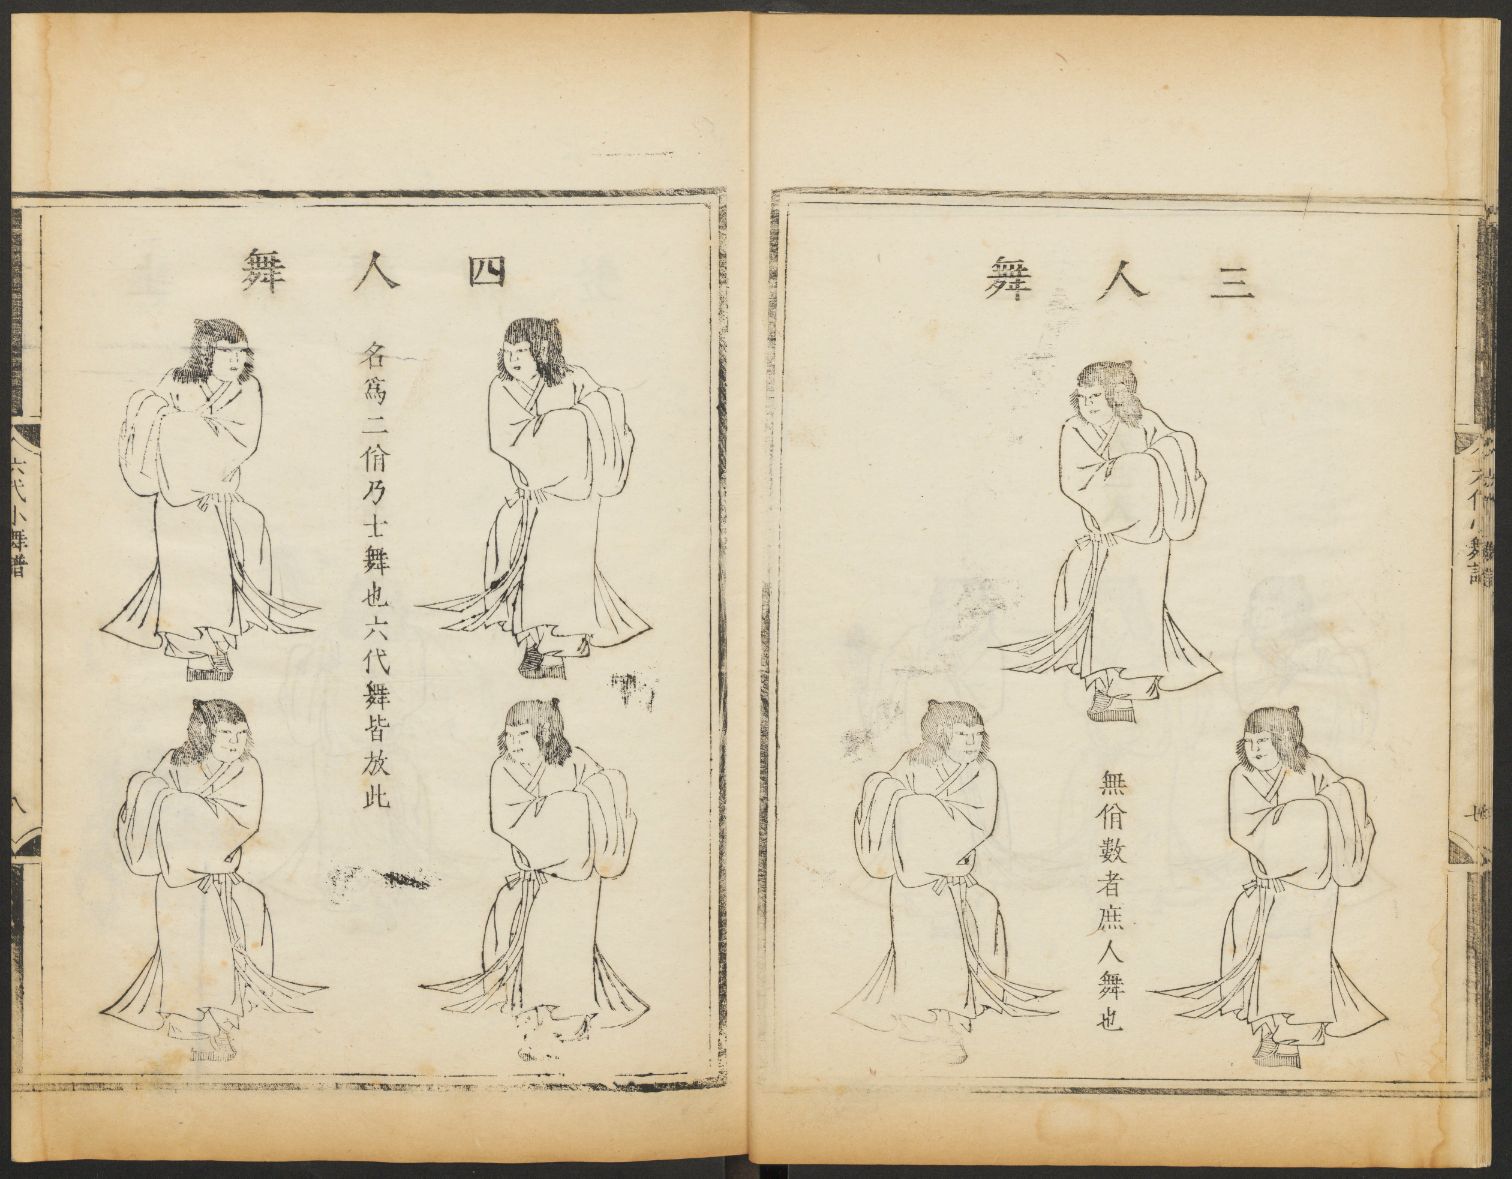 三人舞
無佾數者庶人舞也
六代小舞譜
七
四人舞
名爲二佾乃士舞也六代舞皆放此
六代小舞譜
八